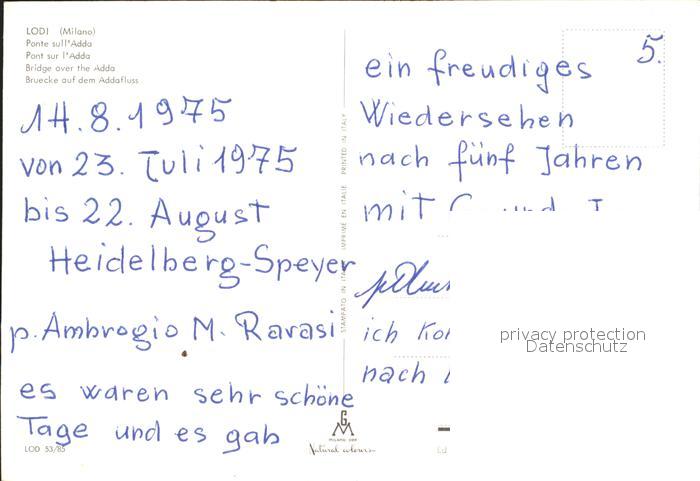 LODI (Milano)
Ponte sull'Adda
Pont sur l'Adda
Bridge over the Adda
Bruecke auf dem Addafluss
14.8.1975
von 23. Juli 1975
bis 22. August
Heidelberg-Speyer
p. Ambrogio M. Ravasi
es waren sehr schöne
Tage und es gab
LOD 53/85
STAMPATO IN IMPRIME EN ITALIE PRINTED IN ITALY
G
M
MILANO
Natural colours
5.
ein freudiges
Wiedersehen
nach fünf Jahren
mit
ich
nach
privacy protection
Datenschutz